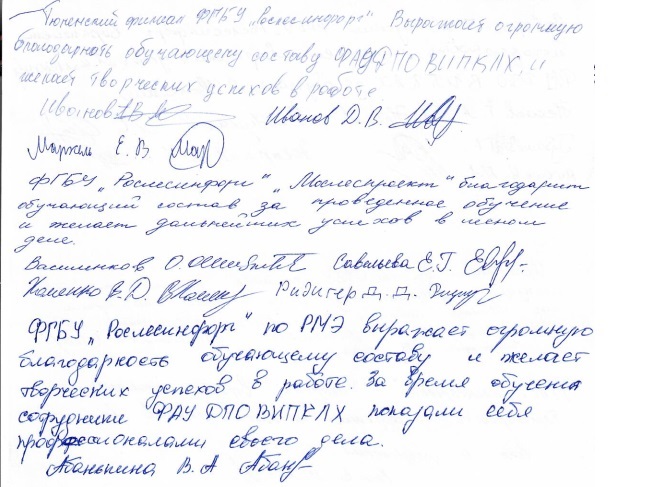 Тюменский филиал ФГБУ „Рослесинфорг" Выражает огромную
благодарность обучающему составу ФАУ ДПО ВИПКЛХ, и
желает творческих успехов в работе
Иванов Иванов Д. В.
Маржель Е. В
ФГБУ „Рослесинфорг" „Мослеспроект" благодарит
обучающий состав за проведенное обучение
и желает дальнейших успехов в лесном
деле.
Василенков О. Савельева Е.Г.
Хоменко В.Д. Ридигер Д. Д.
ФГБУ „Рослесинфорг" по РМЭ выражает огромную
благодарность обучающему составу и желает
творческих успехов в работе. За время обучения
сотрудники ФАУ ДПО ВИПКЛХ показали себя
профессионалами своего дела.
Абанькина В. А